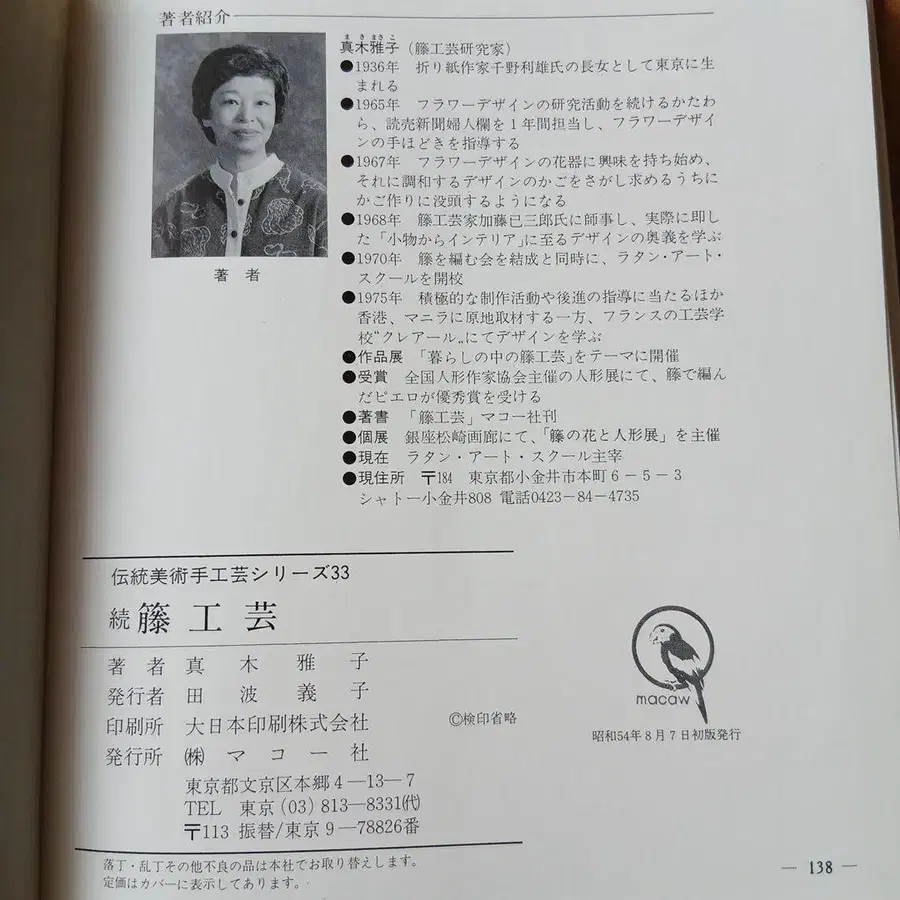 著者紹介
まきまさこ
真木雅子（籐工芸研究家）
●1936年　折り紙作家千野利雄氏の長女として東京に生
まれる
●1965年　フラワーデザインの研究活動を続けるかたわ
ら、読売新聞婦人欄を１年間担当し、フラワーデザイ
ンの手ほどきを指導する
●1967年　フラワーデザインの花器に興味を持ち始め、
それに調和するデザインのかごをさがし求めるうちに
かご作りに没頭するようになる
●1968年　籐工芸家加藤已三郎氏に師事し、実際に即し
た「小物からインテリア」に至るデザインの奥義を学ぶ
●1970年　籐を編む会を結成と同時に、ラタン・アート・
スクールを開校
●1975年　積極的な制作活動や後進の指導に当たるほか
香港、マニラに原地取材する一方、フランスの工芸学
校"クレアール„にてデザインを学ぶ
●作品展　「暮らしの中の籐工芸」をテーマに開催
●受賞　全国人形作家協会主催の人形展にて、籐で編ん
だピエロが優秀賞を受ける
●著書　「籐工芸」マコー社刊
●個展　銀座松崎画廊にて、「籐の花と人形展」を主催
●現在　ラタン・アート・スクール主宰
●現住所　〒184　東京都小金井市本町６－５－３
シャトー小金井808 電話0423－84－4735
著　者
伝統美術手工芸シリーズ33
続 籐工芸
著　者　真木雅子
発行者　田波義子
印刷所　大日本印刷株式会社
発行所　㈱マコー社
東京都文京区本郷４―13―７
TEL　東京（03）813―8331㈹
〒113 振替/東京９―78826番
©検印省略
macaw
昭和54年８月７日初版発行
落丁・乱丁その他不良の品は本社でお取り替えします。
定価はカバーに表示してあります。
― 138 ―